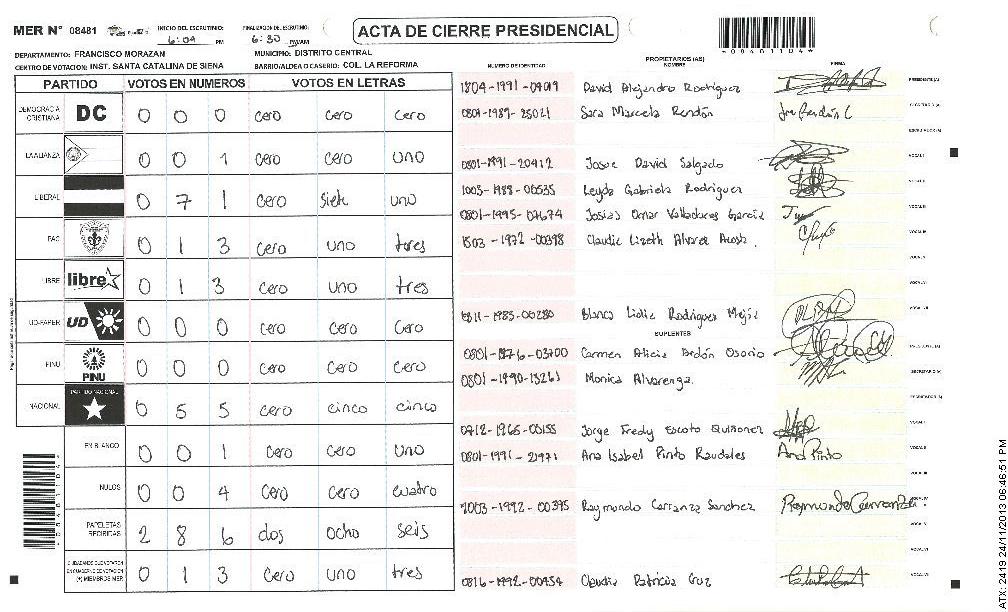 MER N° 08481 INICIO DEL ESCRUTINIO: 6:09 PM FINALIZACION DEL ESCRUTINIO: 6:30 PM/AM ACTA DE CIERRE PRESIDENCIAL
DEPARTAMENTO: FRANCISCO MORAZAN MUNICIPIO: DISTRITO CENTRAL
CENTRO DE VOTACION: INST. SANTA CATALINA DE SIENA BARRIO/ALDEA O CASERIO: COL. LA REFORMA
PARTIDO VOTOS EN NUMEROS VOTOS EN LETRAS
DEMOCRACIA CRISTIANA DC 0 0 0 cero cero cero
LA ALIANZA 0 0 1 cero cero uno
LIBERAL 0 7 1 cero siete uno
PAC 0 1 3 cero uno tres
LIBRE libre 0 1 3 cero uno tres
UD-FAPER UD 0 0 0 cero cero cero
PINU PINU 0 0 0 cero cero cero
NACIONAL PARTIDO NACIONAL 0 5 5 cero cinco cinco
EN BLANCO 0 0 1 cero cero uno
NULOS 0 0 4 cero cero cuatro
PAPELETAS RECIBIDAS 2 8 6 dos ocho seis
CIUDADANOS QUE VOTARON EN CUADERNO DE VOTACION (+) MIEMBROS MER 0 1 3 cero uno tres
NUMERO DE IDENTIDAD PROPIETARIOS (AS) NOMBRE FIRMA
1804-1991-04019 David Alejandro Rodriguez PRESIDENTE (A)
0801-1989-25021 Sara Marcela Rendón SECRETARIO (A)
ESCRUTADOR (A)
0801-1991-20412 Josue David Salgado VOCAL I
1003-1988-00535 Leyda Gabriela Rodriguez VOCAL II
0801-1995-07674 Josias Omar Valladares Garcia VOCAL III
1503-1972-00398 Claudia Lizeth Alvarez Acosta VOCAL IV
VOCAL V
VOCAL VI
1811-1985-00280 Blanca Lidia Rodriguez Mejia VOCAL VII
SUPLENTES
0801-1976-03700 Carmen Alicia Bardón Osorio PRESIDENTE (A)
0801-1990-13261 Monica Alvarenga SECRETARIO (A)
ESCRUTADOR (A)
0712-1965-00155 Jorge Fredy Escoto Quiñonez VOCAL I
0801-1991-21971 Ana Isabel Pinto Raudales Ana Pinto VOCAL II
VOCAL III
1003-1992-00395 Raymundo Carranza Sanchez Raymundo Carranza VOCAL IV
VOCAL V
VOCAL VI
0816-1992-00454 Claudia Patricia Cruz VOCAL VII
ATX: 2419 24/11/2013 06:46:51 PM